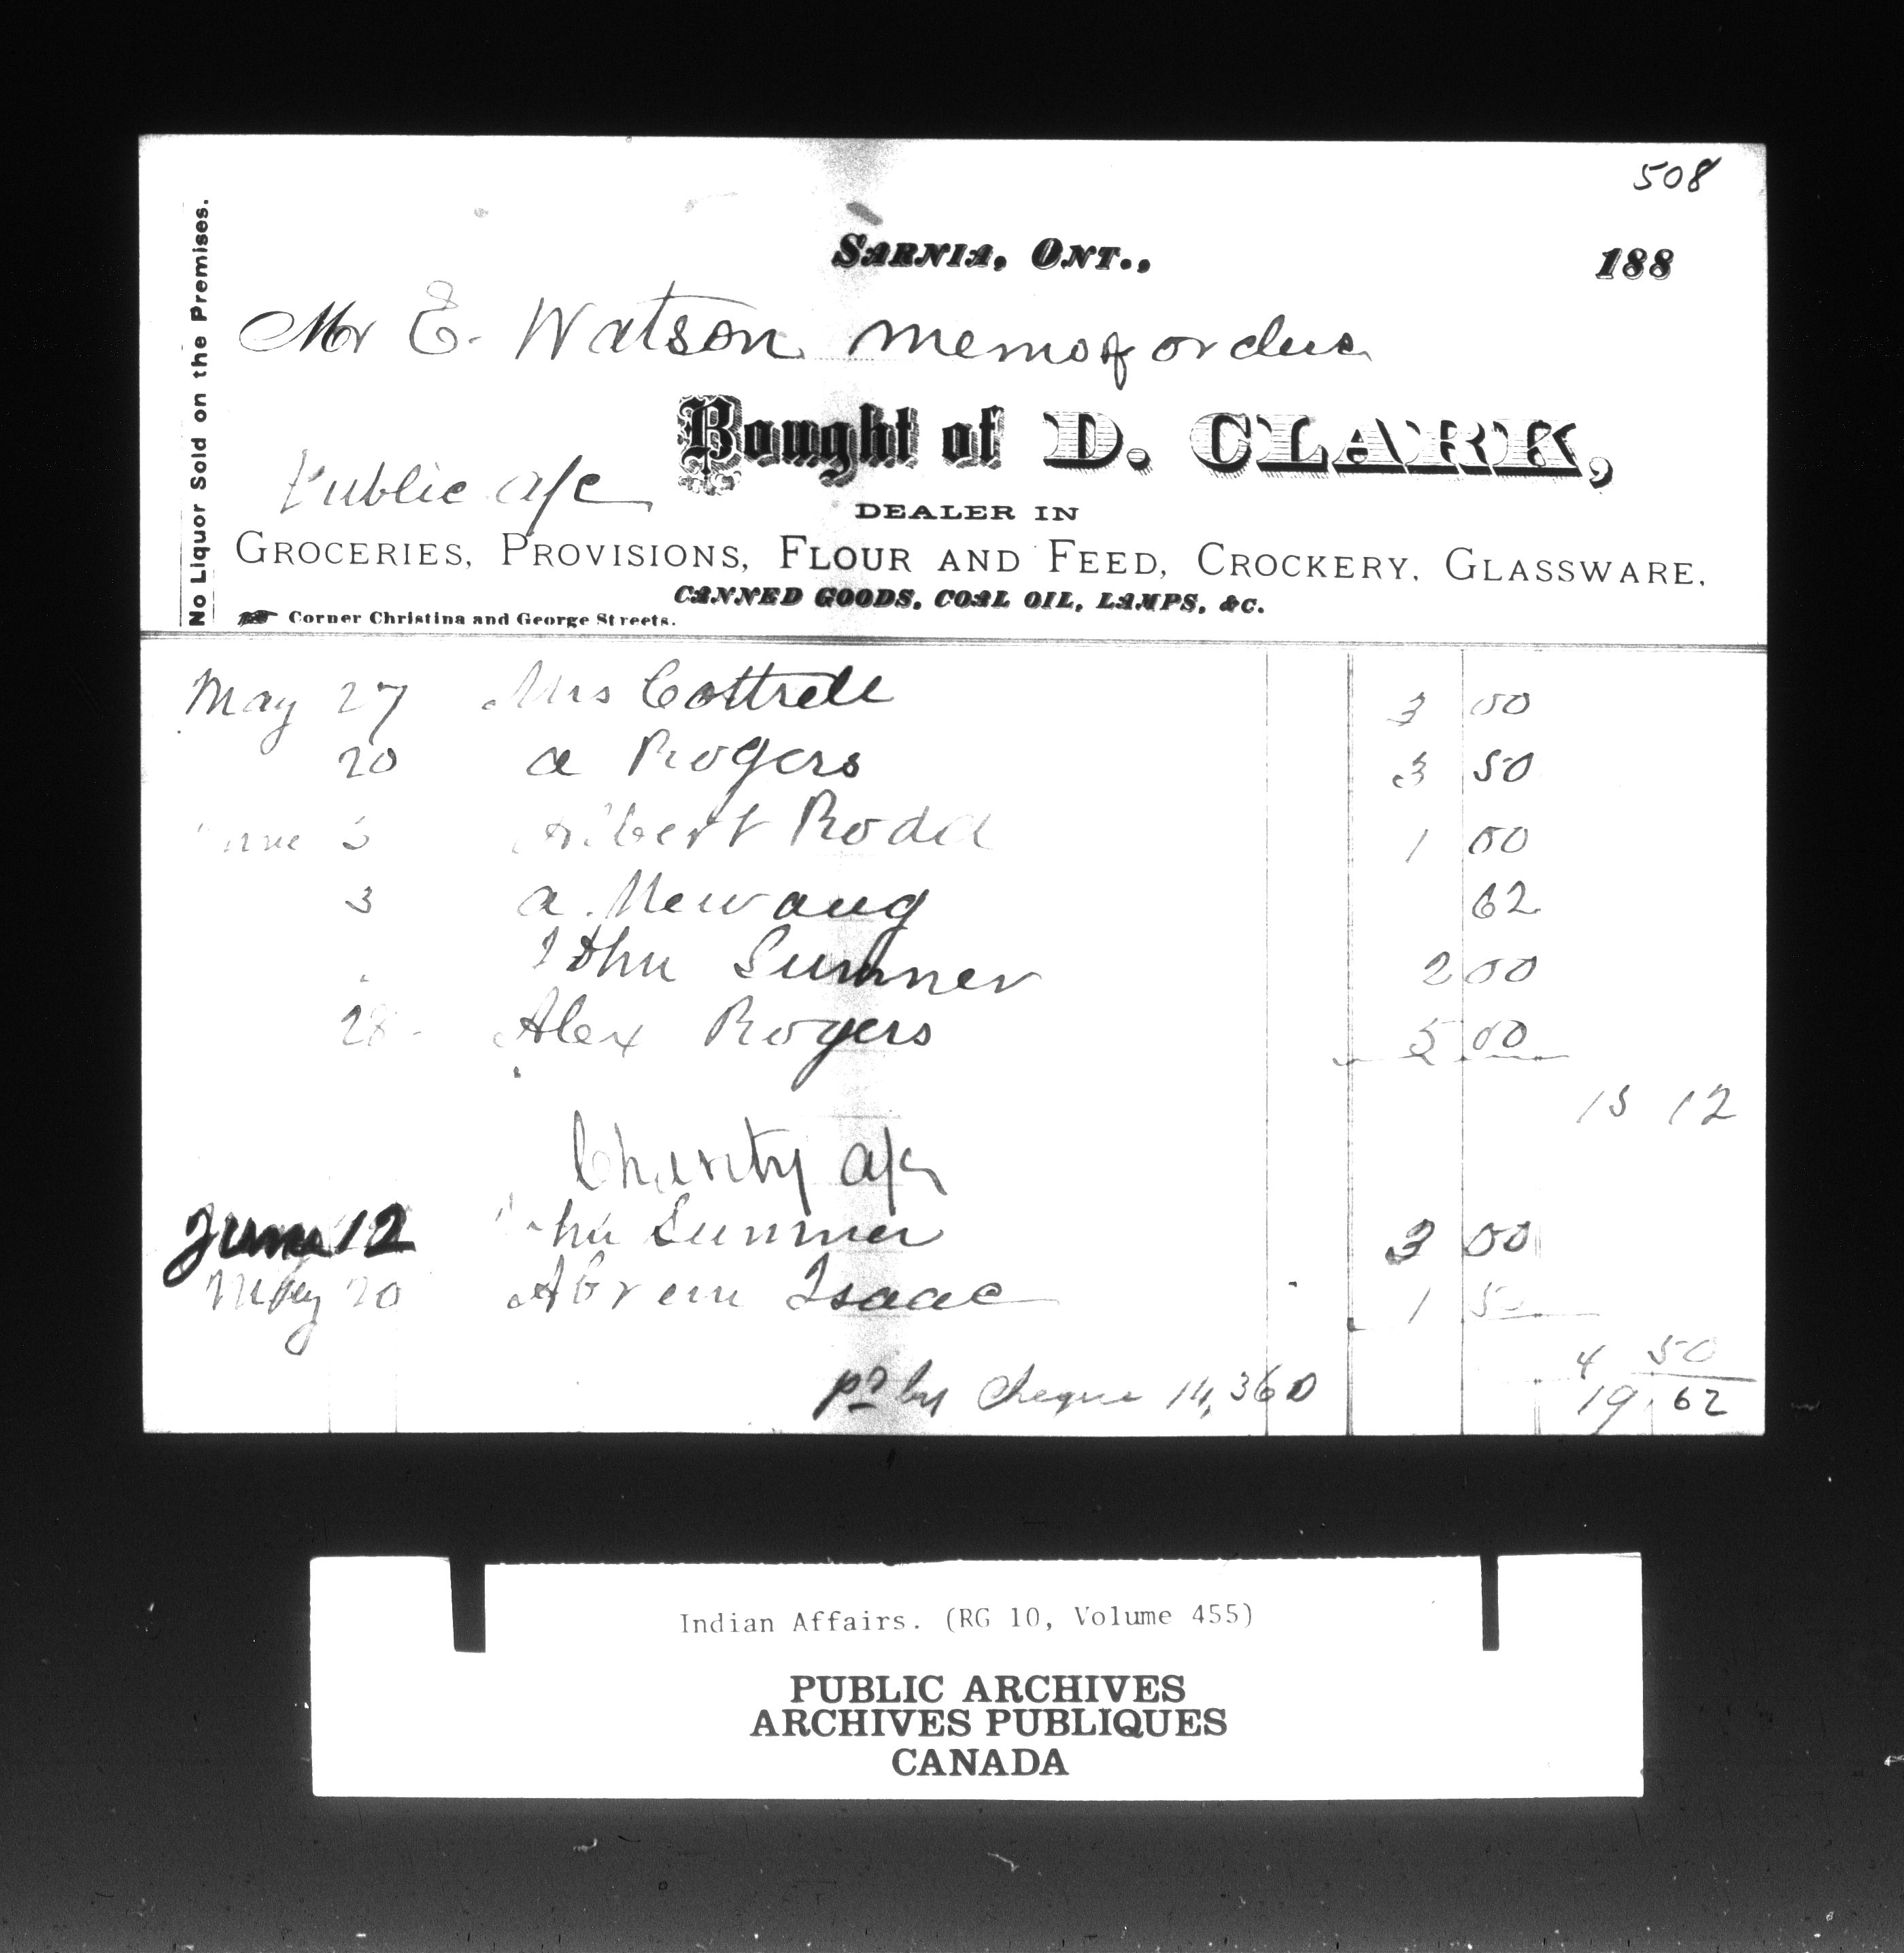 508
No Liquor Sold on the Premises.
SARNIA, ONT., 188
Mr E. Watson memo of orders
Bought of D. CLARK,
Public a/c
DEALER IN
GROCERIES, PROVISIONS, FLOUR AND FEED, CROCKERY, GLASSWARE,
CANNED GOODS, COAL OIL, LAMPS, &C.
Corner Christina and George Streets.
May 27 Mrs Cottrell 3 00
20 a Rogers 3 50
June 3 Albert Rodd 1 00
3 a. 62
" John Sumner 2 00
28 Alex Rogers 5 00
15 12
Charity a/c
June 12 John Sumner 3 00
May 20 Abram Isaac 1 50
4 50
pd by Cheque 14,360 19.62
Indian Affairs. (RG 10, Volume 455)
PUBLIC ARCHIVES
ARCHIVES PUBLIQUES
CANADA